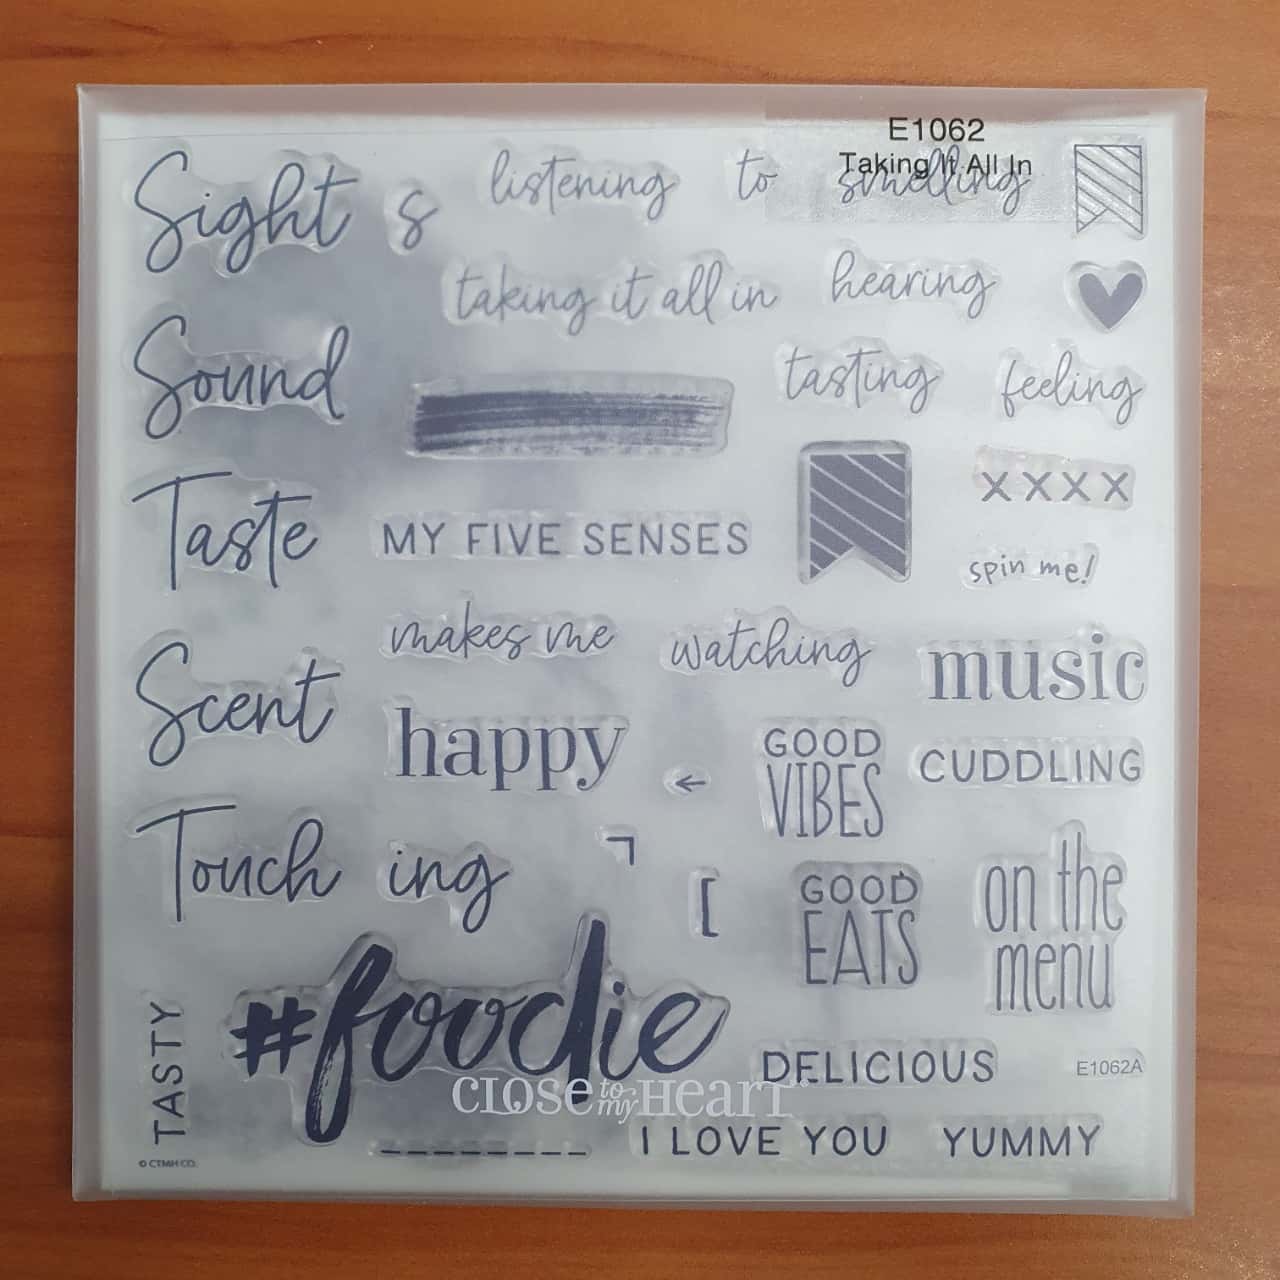 E1062
Taking It All In
Sight s listening to smelling
taking it all in hearing
Sound
tasting feeling
xxxx
Taste MY FIVE SENSES
spin me!
makes me watching music
Scent happy
GOOD
VIBES
CUDDLING
←
Touch ing
GOOD
EATS
on the
menu
[
#foodie
TASTY
DELICIOUS E1062A
CLOSE to my HEART
I LOVE YOU YUMMY
© CTMH CO.